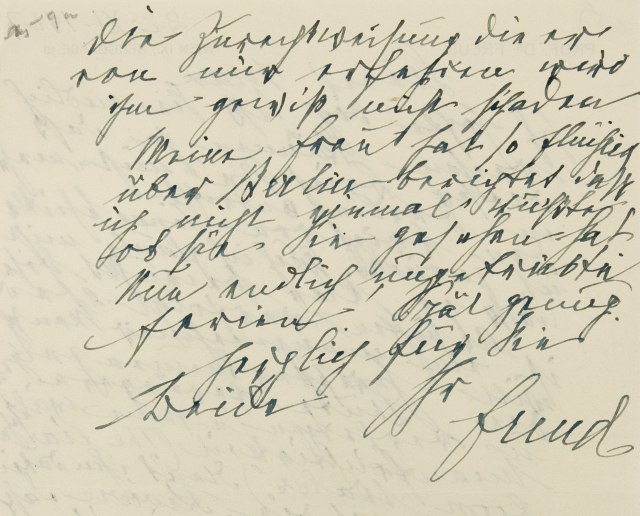 die Zurechtweisung die er
von mir erfahren wird
ihm gewiß nicht schaden
Meine Frau hat so flüchtig
über Berlin berichtet daß
ich nicht einmal wußte
ob sie Sie gesehen hat
Nun endlich ungetrübte
Ferien, spät genug.
herzlich für Sie
Beide Ihr
Freud